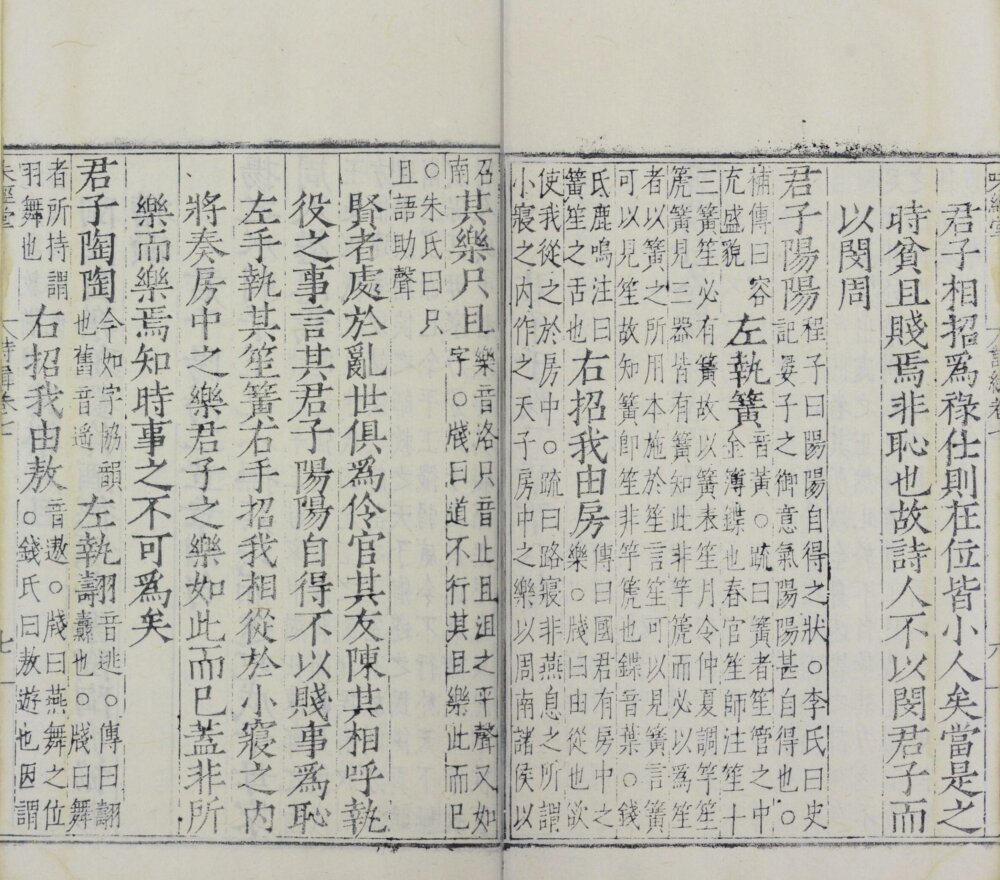 君子相招爲祿仕則在位皆小人矣當是之
時貧且賤焉非恥也故詩人不以閔君子而
以閔周
君子陽陽程子曰陽陽自得之狀○李氏曰史記晏子之御意氣陽陽甚自得也○
補傳曰容充盛貌左執簧音黃○疏曰簧者笙管之中金薄鍱也春官笙師注笙十
三簧笙必有簧故以簧表笙月令仲夏調竽笙
箎簧見三器皆有簧知此非竽箎而必以為笙
者以簧之所用本施於笙言笙可以見簧言簧
可以見笙故知簧即笙非竽箎也鍱音葉○錢
氏鹿鳴注曰簧笙之舌也右招我由房傳曰國君有房中之樂○牋曰由從也欲
使我從之於房中○疏曰路寢非燕息之所謂
小寢之內作之天子房中之樂以周南諸侯以
召南其樂只且樂音洛只音止且沮之平聲又如字○牋曰道不行其且樂此而已
○朱氏曰只且語助聲
賢者處於亂世俱爲伶官其友陳其相呼執
役之事言其君子陽陽自得不以賤事爲恥
左手執其笙簧右手招我相從於小寢之內
將奏房中之樂君子之樂如此而已蓋非所
樂而樂焉知時事之不可爲矣
君子陶陶今如字協韻也舊音遙左執翿音逃○傳曰翿纛也○牋曰舞
者所持謂羽舞也右招我由敖音遨○牋曰燕舞之位○錢氏曰敖遊也因謂
詩緝卷七
七